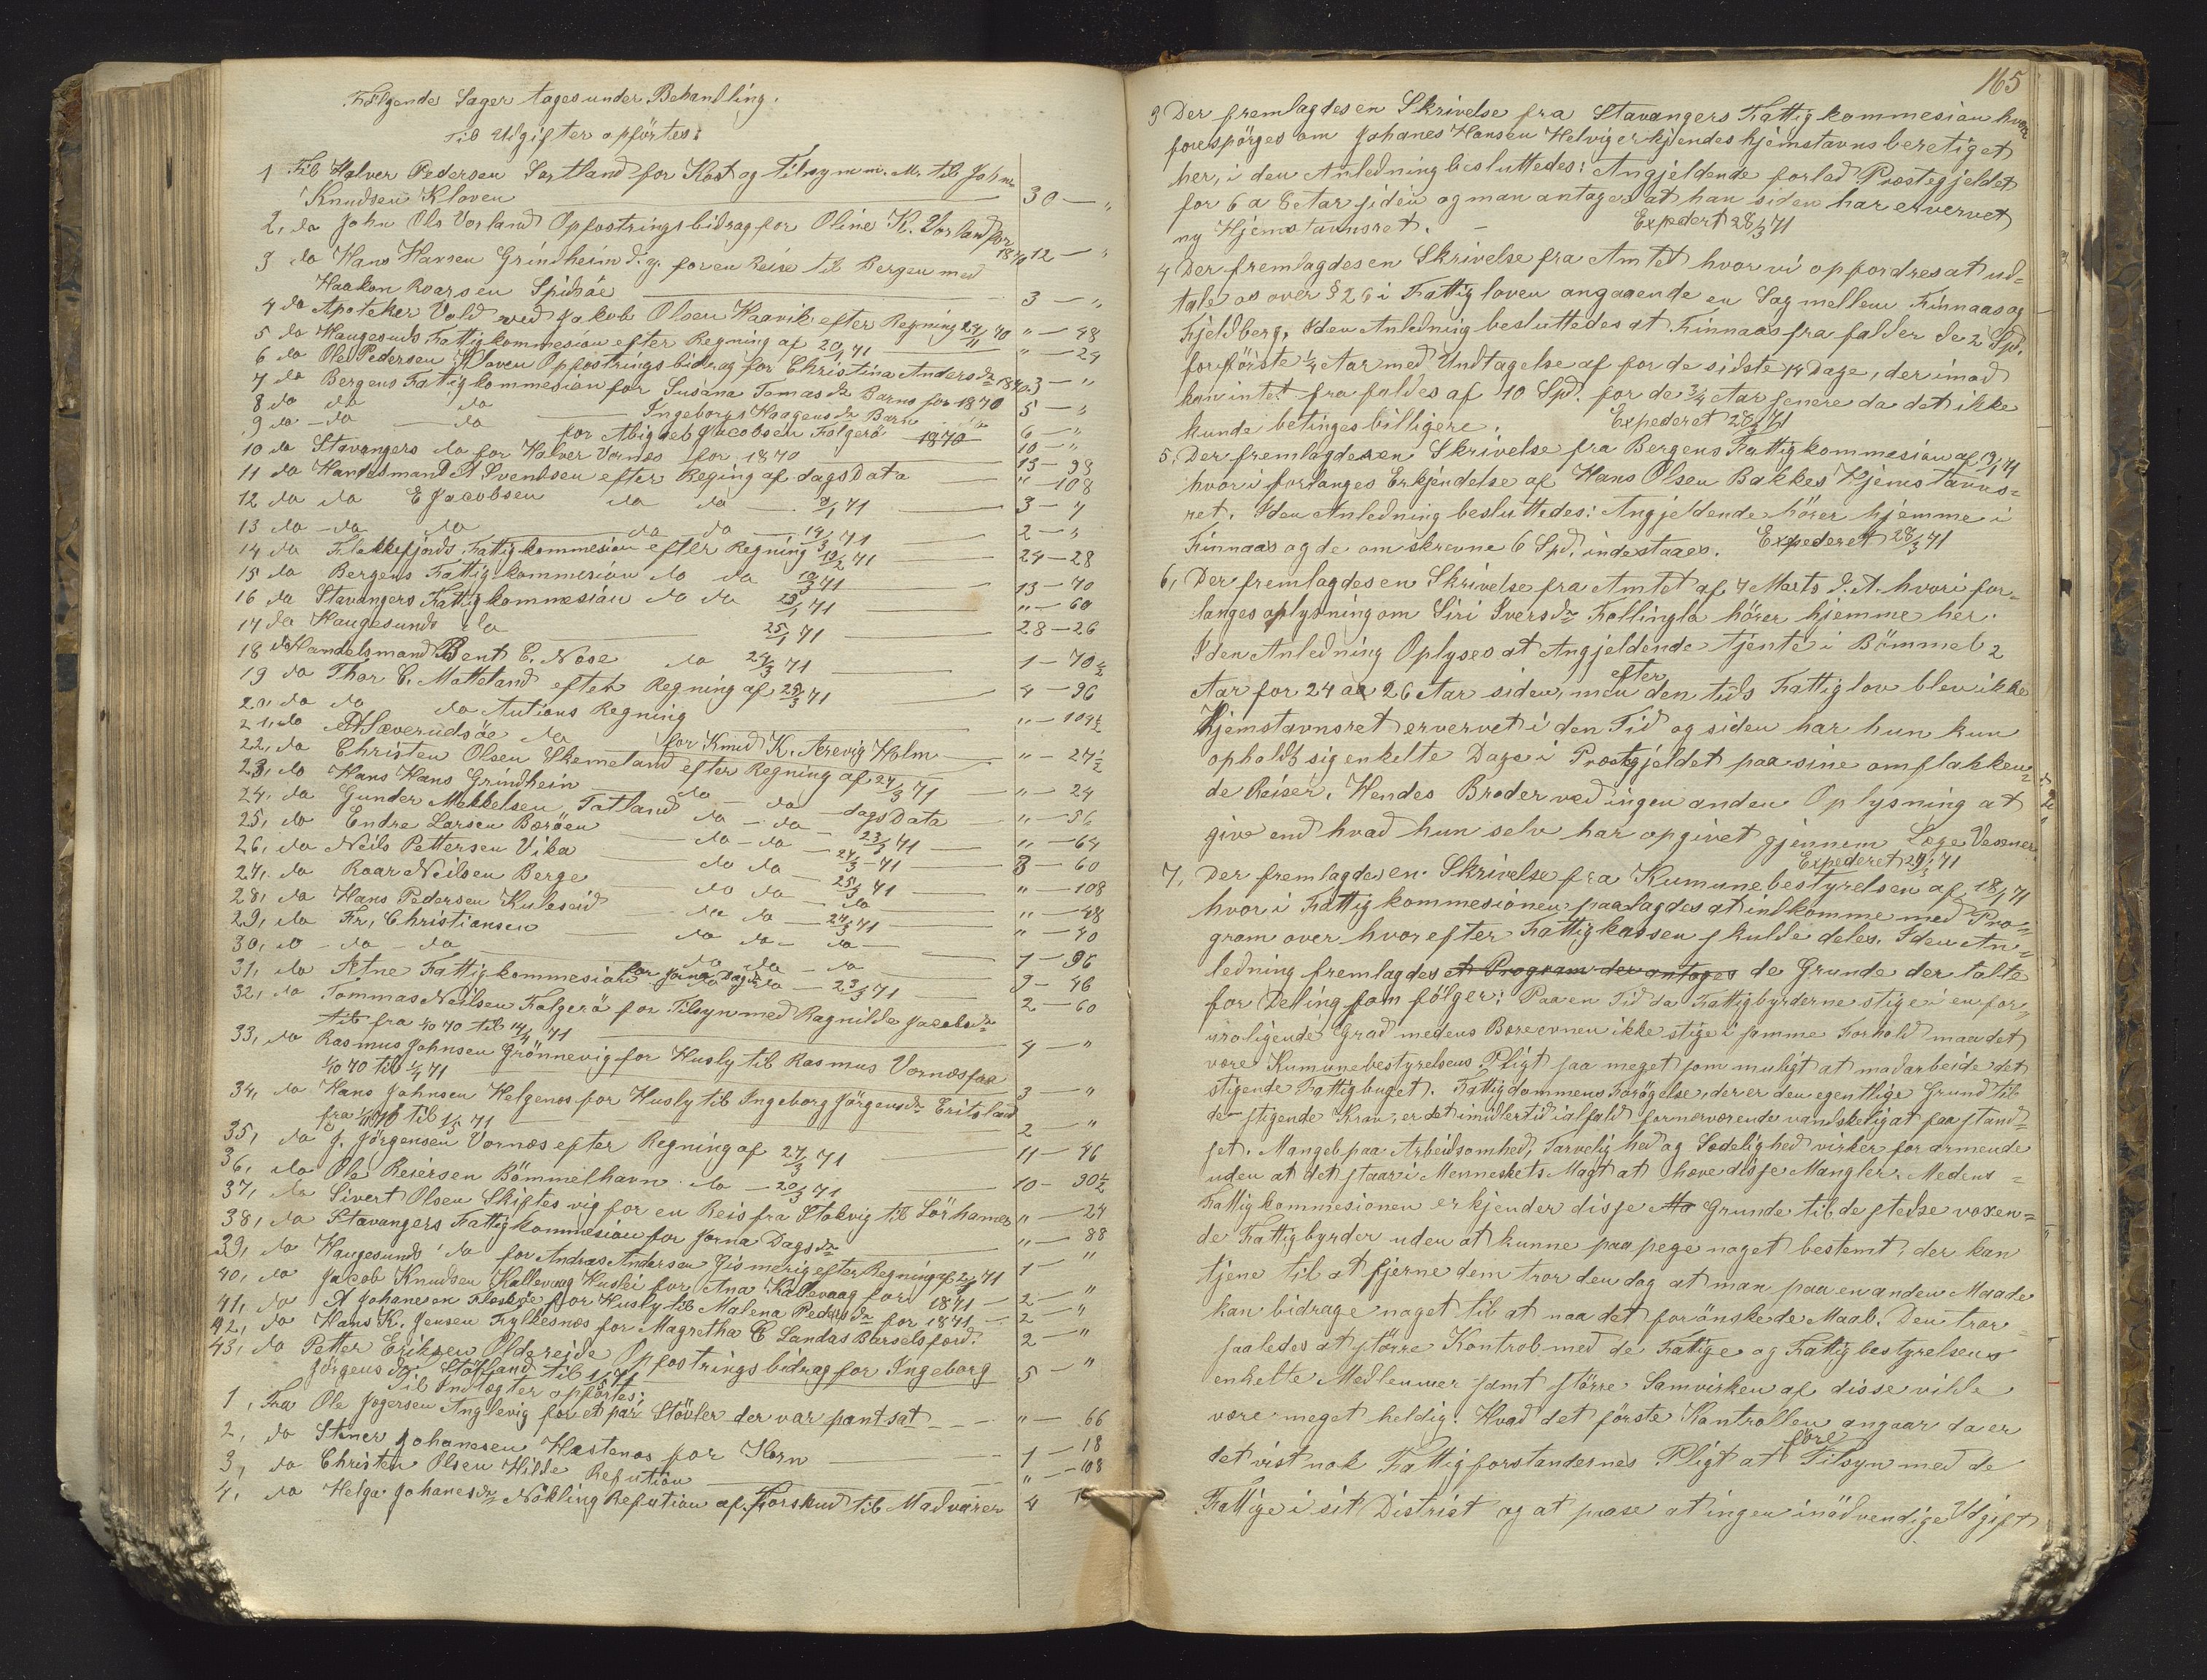 Følgende Sager tages under Behandling.
Til Udgifter opførtes:
1 Til Halver Pedersen Sortland for Kost og Tilsyn m. M. til Johns
Knudsen Kloven 30 — "
2, do John Ols Vorland Opfostringsbidrag for Oline K. Vorland for 1870 12 — "
3 do Hans Hansen Grindheim d. y. for en Reise til Bergen med
Haakon Roarsen Spidsöe 3 — "
4 do Apoteker Vold ved Jakob Olsen Haavik efter Regning 24/11 70 " — 48
5 do Haugesunds Fattigkommesion efter Regning af 20/1 71 " — 24
6 do Ole Pedersen Kloven Opfostringsbidrag for Christina Andersdr 1870 3 — "
7 do Bergens Fattigkommesion for Susana Tomasdr Barns for 1870 5 — "
8 do do do Ingeborg Haagensdr Barn do 6 — "
9 do — do — do for Abigael Jacobsen Folgerö 1870 10 — "
10 do Stavangers do for Halver Vornes for 1870 13 — 98
11 do Handelsmand A Svendsen efter Reging af dags Data " — 108
12 do do E Jacobsen do do 9/1 71 3 — 7
13 do — do do do do 14/3 71 2 — "
14 do Flekkefjords Fattigkommesion efter Regning 13/2 71 24 — 28
15 do Bergens Fattigkommesion do do 10/3 71 13 — 70
16 do Stavangers Fattigkommesion do do 23/1 71 " — 60
17 do Haugesunds do 25/1 71 28 — 26
18 do Handelsmand Bent E. Nose do 24/3 71 1 — 70 1/2
19 do Thor C. Matteland efter Regning af 23/3 71 4 — 96
20, do do do Autions Regning " — 109 1/2
21, do A Sæverudsöe do for Knud K. Arevig Holm " — 27 1/2
22, do Christen Olsen Skemeland efter Regning af 24/3 71 " — 24
23, do Hans Hans Grindhein do — do dags Data " — 36
24, do Gunder Mekkelsen Totland do — do — 23/3 71 " — 64
25, do Endre Larsen Boröen do — do — 24/3 — 71 3 — 60
26, do Neils Pettersen Vika do do — 25/3 71 " — 108
27, do Roar Neilsen Berge do do — do " — 48
28, do Hans Pedersen Kuleseid do do — 24/3 71 " — 40
29, do Fr, Christiansen do do — do 1 — 96
30, do — do — do do do — do 9 — 46
31, do Atne Fattigkommesion for Jorna Dagsdr do — 23/3 71 2 — 60
32, do Tommas Neilsen Folgerö for Tilsyn med Ragnilde Jacobsdr
til fra 1/10 70 til 14/4 71 4 — "
33, do Rasmus Johnsen Grönnevig for Husly til Rasmus Vornes fra
1/10 70 til 1/4 71 3 — "
34, do Hans Johnsen Helgenes for Husly til Ingeborg Jörgensdr Eritsland
fra til 1/5 71 2 — "
35, do J. Jörgensen Vornes efter Regning af 27/3 71 11 — 46
36, do Ole Reiersen Bömmelhavn do — 20/3 71 10 — 90 1/2
37, do Sivert Olsen Skiftesvig for en Reis fra Stokvig til Lörhamer " — 24
38, do Stavangers Fattigkommesion for Jorna Dagsdr " — 88
39, do Haugesunds do for Andras Andersen Gismerig efter Regning af 71 1 — "
40, do Jacob Knudsen Kallevaag Huslei for Ana Kallevaag for 1871 — 2 — "
41, do A Johanesen for Husly til Malena Pedersdr for 1871 — 2 — "
42, do Hans K. Jensen Fylkesnes for Magretha E Landas Barselsford. 2 — "
43, do Petter Eriksen Oldereide Opfostringsbidrag for Ingeborg
Jörgensdr Stölsland til 1/5 71 5 — "
Til Indtægter opförtes:
1, Fra Ole Jogersen Anglevig for et par Stövler der var pantsat " — 66
2, do Stiner Johanesen Hæstenes for Korn 1 — 18
3, do Christen Olsen Hilde Refution " — 108
4, do Helga Johanesdr Nökling Refution af Forskud til Madvarer 4
165
3 Der fremlagdes en Skrivelse fra Stavangers Fattigkommesion hvor
forespörges om Johanes Hansen Helvig erkjendes hjemstavnsberetiget
her, i den Anledning besluttedes: Angjeldende forlod Præstegjeldet
for 6 a 8 Aar siden og man antager at han siden har ervervet
ny Hjemstavnsret. — Expedert 28/3 71
4 Der fremlagdes en Skrivelse fra Amtet hvor vi opfordres at ud-
tale os over § 26 i Fattigloven angaaende en Sag mellem Finnaas og
Fjeldberg, I den Anledning besluttedes at Finnaas fra falder de 2 Spd.
for förste 1/4 Aar med Undtagelse af for de sidste 14 Dage, derimod
kan intet fra faldes af 10 Spd. for de 3/4 Aar senere da det ikke
kunde betinges billigere. Expederet 28/3 71
5, Der fremlagdes en Skrivelse fra Bergens Fattigkommesion af 19/1 71
hvori forlanges Erkjendelse af Hans Olsen Bakkes Hjemstavns-
ret. I den Anledning besluttedes: Angjeldende hörer hjemme i
Finnaas og de omskrevne 6 Spd. indestaaes. Expederet 28/3 71
6, Der fremlagdes en Skrivelse fra Amtet af 7 Marts d. A. hvori for-
langes oplysning om Siri Iversdr Follingla hörer hjemme her.
I den Anledning Oplyses at Angjeldende tjente i Bömmel 2
Aar for 24 aa 26 Aar siden, men efter den tids Fattiglov blev ikke
Hjemstavnsret ervervet i den Tid og siden har hun kun
opholdt sig enkelte Dage i Præstegjeldet paa sine omflakken-
de Reiser. Hendes Broder ved ingen anden Oplysning at
give end hvad hun selv har opgivet gjennem Læge Vesener.
Expederet 29/3 71
7, Der fremlagdes en Skrivelse fra Kumunebestyrelsen af 18/1 71
hvor i Fattigkommesionen paalagdes at indkomme med Pro-
gram over hvorefter Fattigkassen skulde deles. I den An-
ledning fremlagdes et Program der antoges de Grunde der talte
for Deling som fölger: Paa en Tid da Fattigbyrderne stige i en for-
uroligende Grad medens Bæreevnen ikke stige i samme Forhold maa det
være Kumunebestyrelsens Pligt saa meget som muligt at modarbeide det
stigende Fattigbuget. Fattigdommens Forögelse, der er den egentlige Grund til
de stigende Krav, er det imidlertid ialfald fornerværende vanskeligat faa stand-
set. Mangel paa Arbeidsomhed, Tarvelighed og Sædelighed virker forarmende
uden at det staar i Menneskets Magt at hæve disse Mangler. Medens
Fattigkommesionen erkjender disse Grunde til de stedse voxen-
de Fattigbyrder uden at kunne paapege noget bestemt, der kan
tjene til at fjerne dem tror den dog at man paa en anden Maade
kan bidrage noget til at naa det forönskede Maal. Den tror
saaledes at större Kontrol med de Fattige og Fattigbestyrelsens
enkelte Medlemmer samt större Samvirken af disse vilde
være meget heldig. Hvad det förste Kontrollen angaar da er
det vist nok Fattigforstandernes Pligt at före Tilsyn med de
Fattige i sit District og at paase at ingen inödvendige Udgift